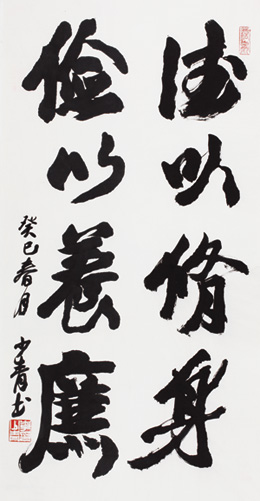 德以脩身
儉以養廉
癸巳春月
少青书